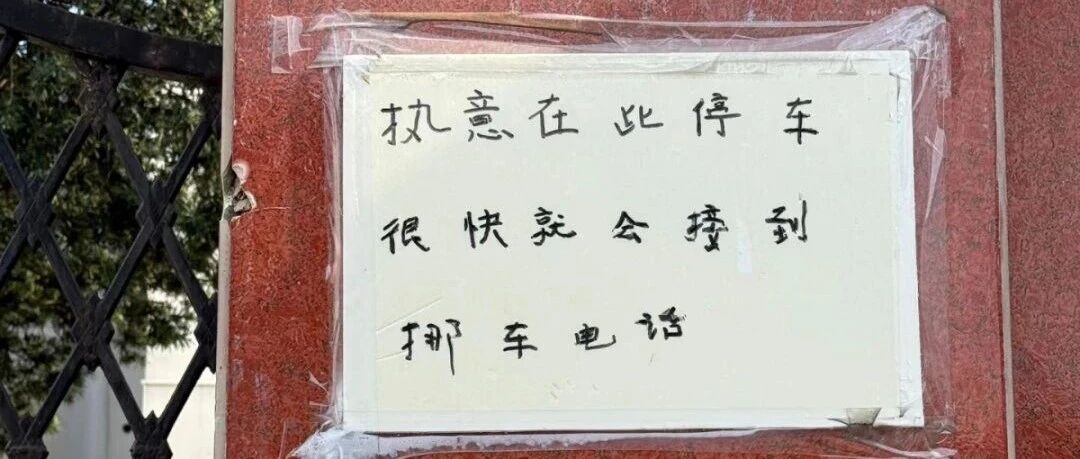 执意在此停车
很快就会接到
挪车电话